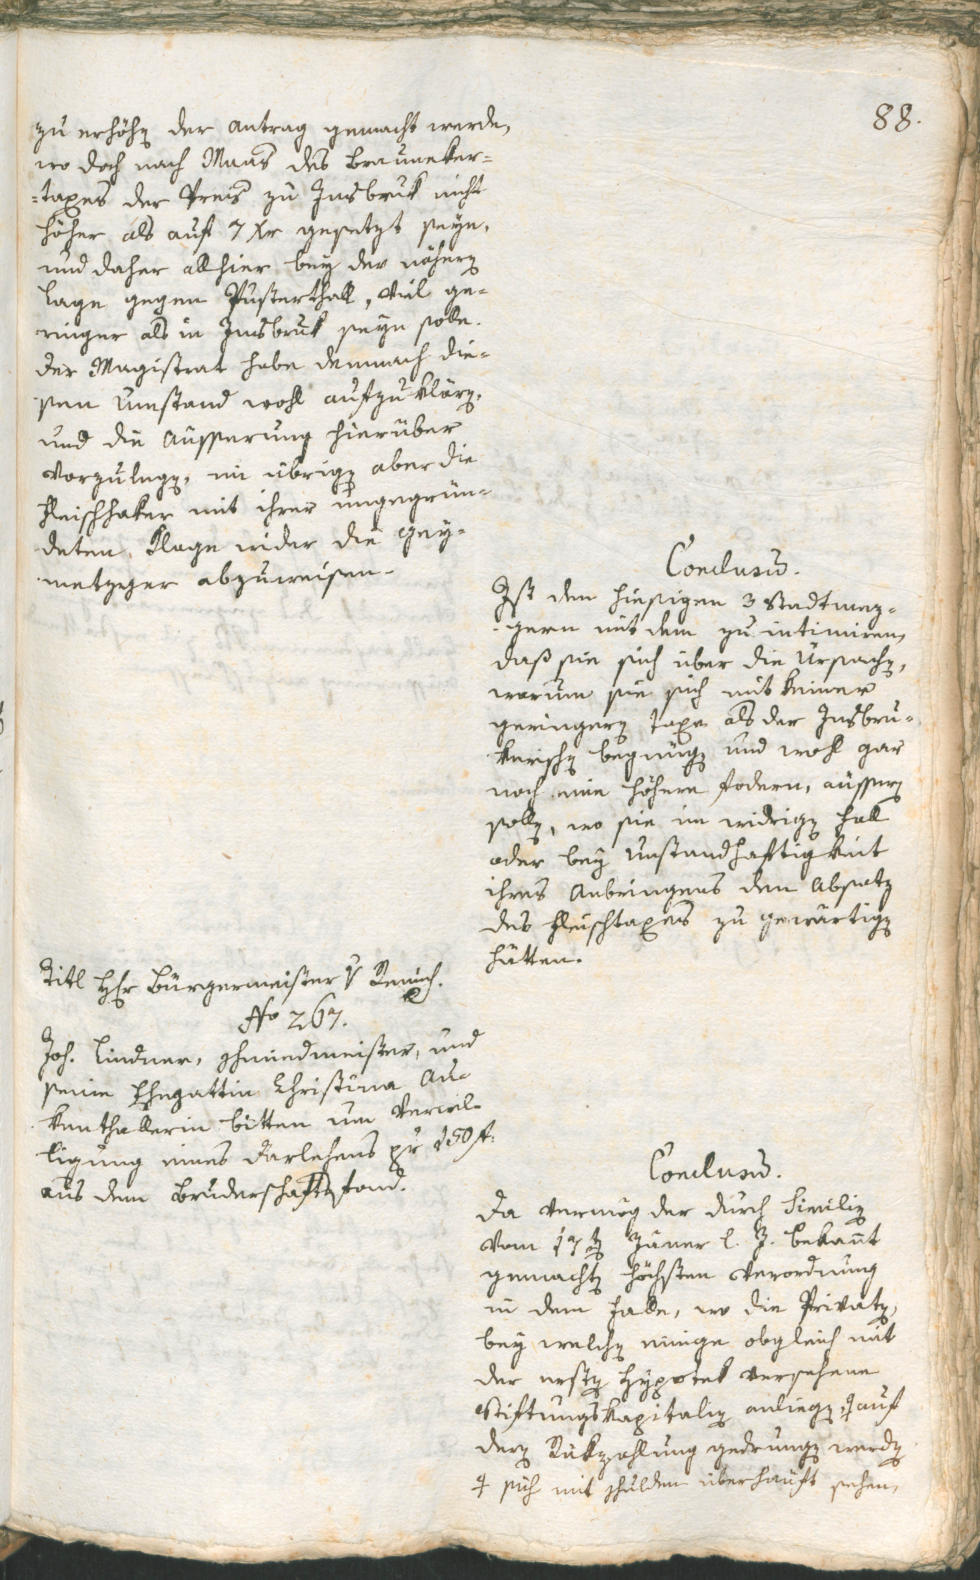 88.
zu erhöhen der Antrag gemacht werde,
wo doch nach Maas des Brauneker=
=taxes der Preis zu Insbruk nicht
höher als auf 7 Xr gesetzt seyn,
und daher allhier bey der nähern
Lage gegen Pusterthall, viel ge=
ringer als in Insbruk seyn solle.
Der Magistrat habe demnach die=
sen Umstand wohl aufzuklären,
und die Äusserung hierüber
vorzulegen, im übrigen aber die
Fleischhaker mit ihrer ungegrün=
deten Klage wider die Gey=
metzger abzuweisen.
Conclusum.
Ist den hiesigen 3 Stadtmez=
gern mit dem zu intimiren,
daß sie sich über die Ursachen,
warum sie sich mit keiner
geringern Taxe als der Insbru=
kerischen begnügen und wohl gar
noch eine höhere fodern, äussern
sollen, wo sie im widrigen Fall
oder bey Unstandhaftigkeit
ihres Anbringens den Absatz
des Fleischtaxes zu gewärtigen
hätten.
Titl Hr Bürgermeister v
No 267.
Joh. Lindner, Schmiedmeister, und
seine Ehegattin Christina Au=
kenthallerin bitten um Verwil=
ligung eines Darlehens pr 150 f.
aus dem Bruderschaftsfond.
Conclusum.
Da vermög der durch Similien
vom 17ten Jäner l. J. bekannt
gemachten höchsten Verordnung
in dem Falle, wo die Privaten,
bey welchen einige obgleich mit
der ersten Hypotek versehene
Stiftungskapitalien anliegen, ‡ auf
deren Rükzahlung gedrungen werden
‡ sich mit Schulden überhäuft sehen,